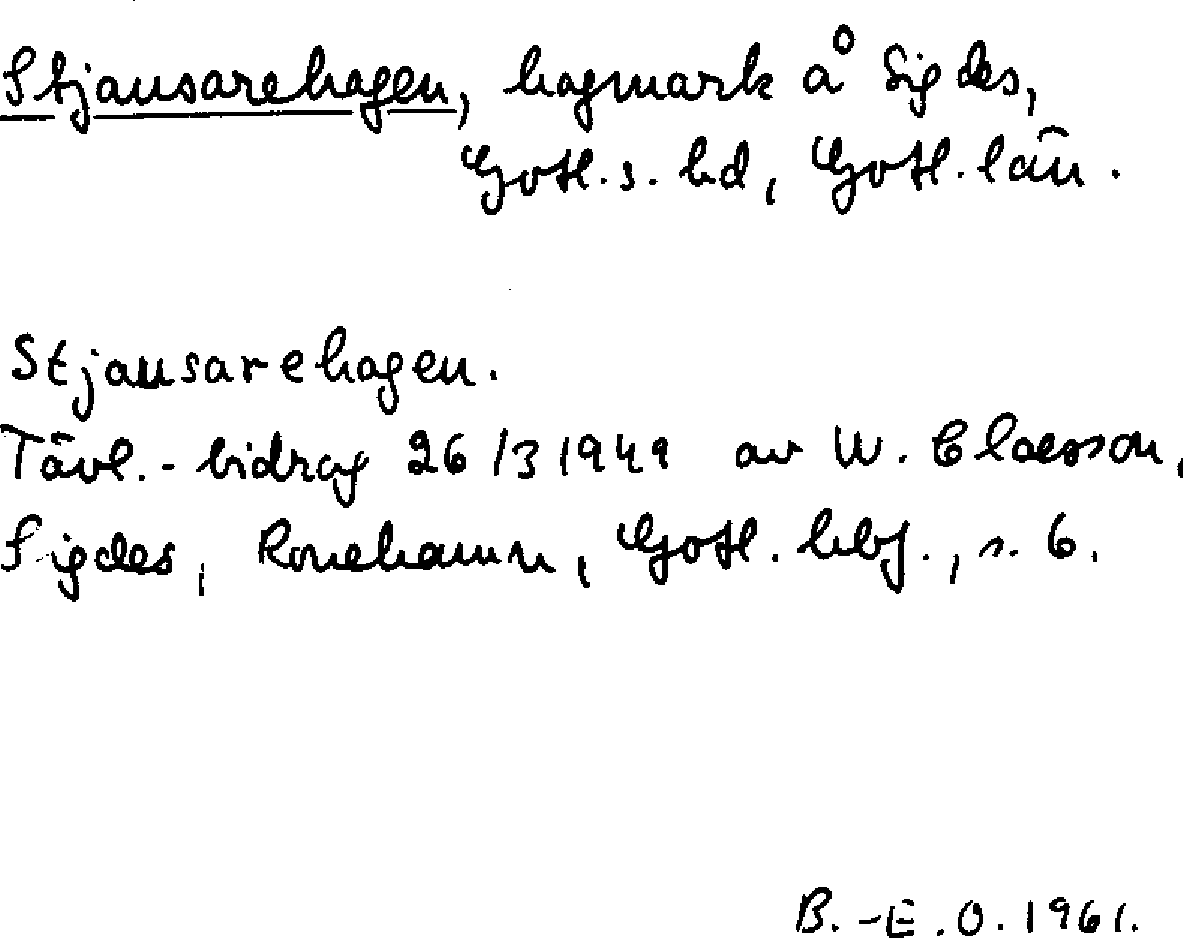 Stjausarehagen, hagmark å Sigdes,
Gotl. s. hd, Gotl. län.
Stjausarehagen.
Tävl.-bidrag 26/3 1949 av W. Claesson,
Sigdes, Ronehamn, Gotl. hbf., s. 6.
B.-E.O. 1961.